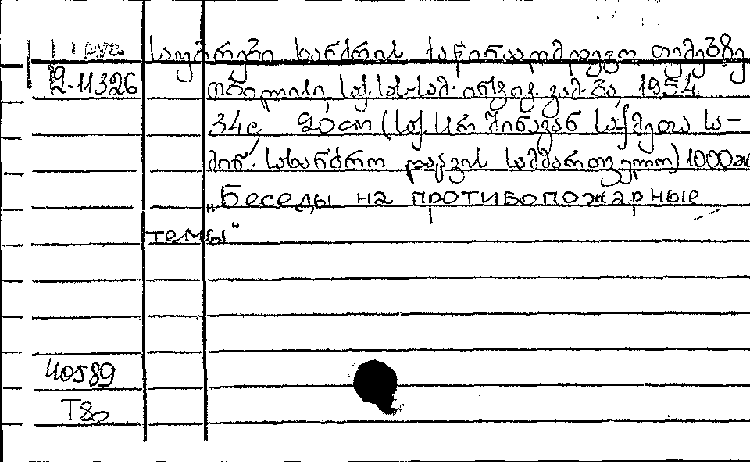 საუბრები ხანძრის საწინააღმდეგო თემებზე
2-11326 თბილისი, საქ. სახ.-სამ. ინჟ. გამ-ბა 1954
34გ 20cm (საქ. სსრ შინაგან საქმეთა სა-
მინ. სახანძრო დაცვის სამმართველო) 1000ც
„Беседы на противопожарные
темы"
40589
T80